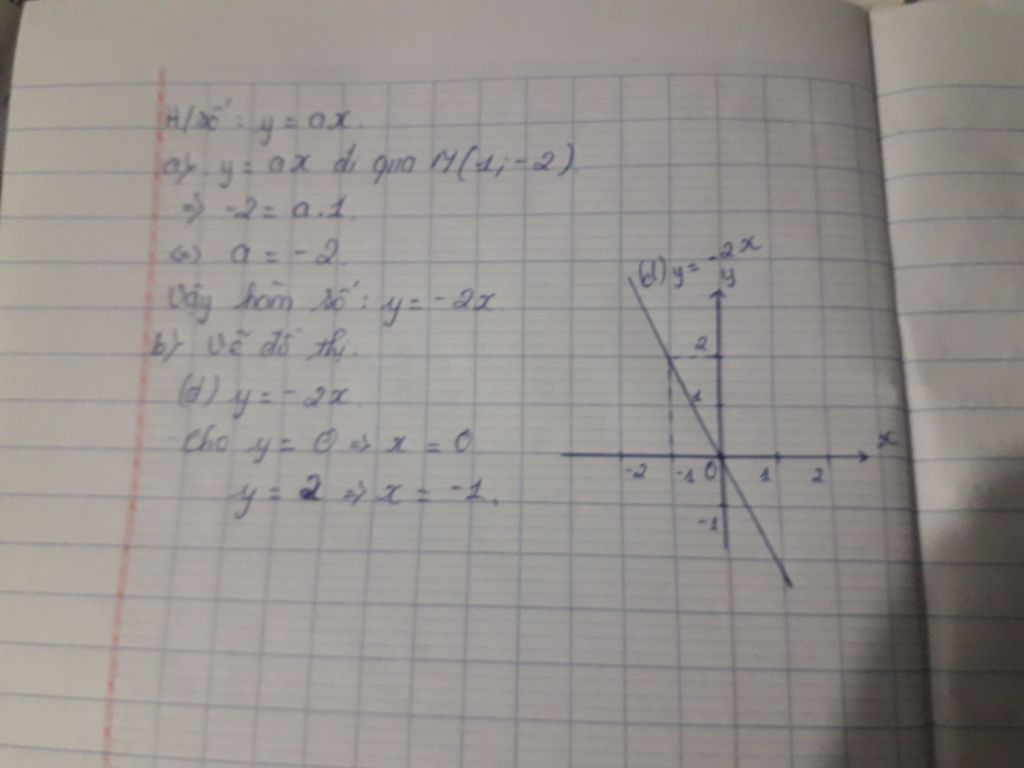 H/số: y = ax.
a) y = ax đi qua M(1; -2)
=> -2 = a.1.
<=> a = -2.
Vậy hàm số: y = -2x
b) Vẽ đồ thị.
(d) y = -2x.
Cho y = 0 => x = 0
y = 2 => x = -1.
(d) y = -2x
y
2
1
x
-2 -1 0 1 2
-1